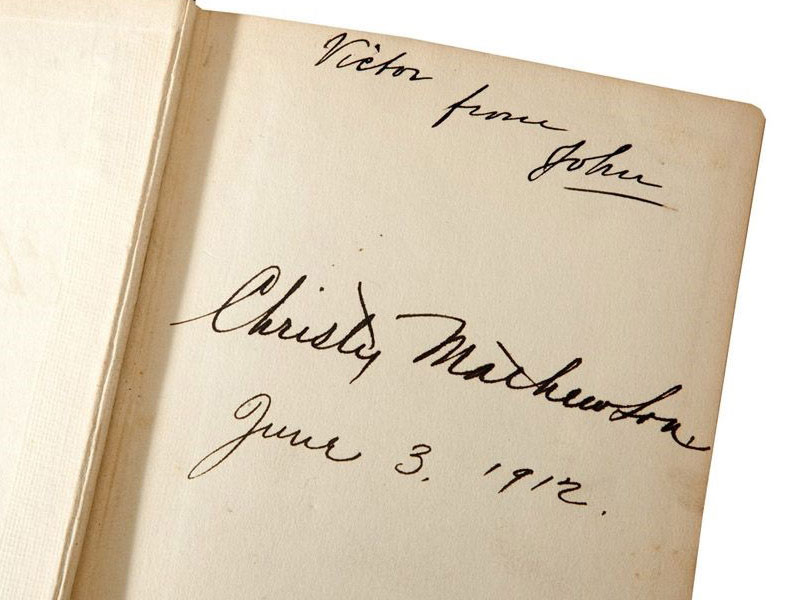 Victor
from
John
Christy Mathewson
June 3, 1912.